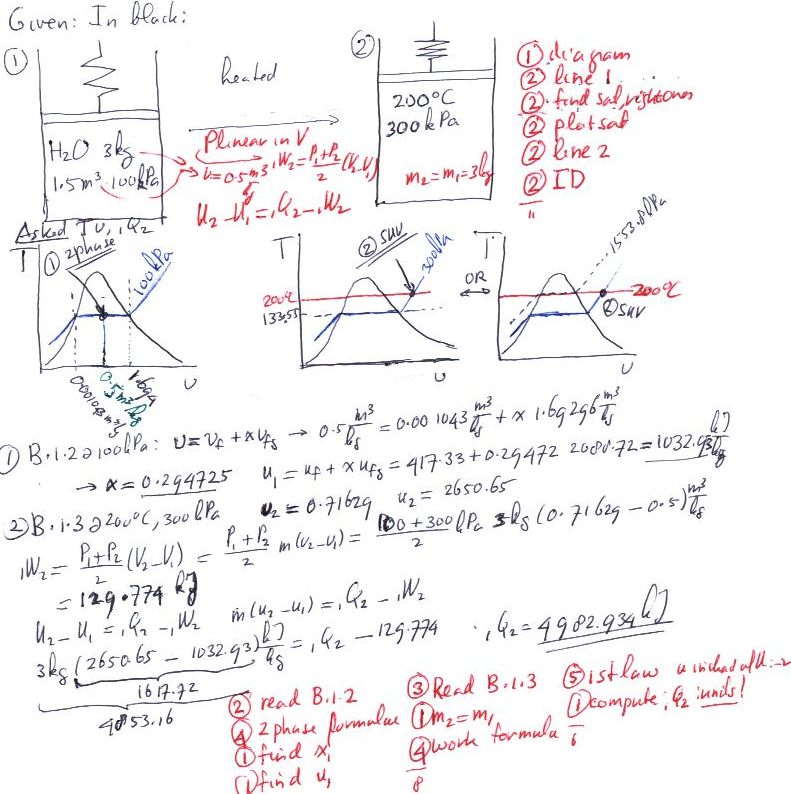 Given: In black:
①
heated
②
200°C
300 kPa
H₂O 3kg
1.5m³ 100kPa
P linear in V
v = 0.5 m³/kg
₁W₂ = (P₁+P₂)/2 (V₂-V₁)
m₂ = m₁ = 3kg
U₂ - U₁ = ₁Q₂ - ₁W₂
① diagram
② line 1
② find sat, right ones
② plot sat
② line 2
② ID
11
Asked Tv, ₁Q₂
T
① 2phase
100kPa
0.001043 m³/kg
0.5 m³/kg
1.694
υ
T
② SHV
300kPa
200°C
133.55
υ
OR
T
1553.8kPa
200°C
② SHV
υ
① B.1.2 @ 100kPa: υ = υf + x υfg → 0.5 m³/kg = 0.001043 m³/kg + x 1.69296 m³/kg
→ x = 0.294725 u₁ = uf + x ufg = 417.33 + 0.29472 2088.72 = 1032.93 kJ/kg
② B.1.3 @ 200°C, 300kPa υ₂ = 0.71629 u₂ = 2650.65
₁W₂ = (P₁+P₂)/2 (V₂-V₁) = (P₁+P₂)/2 m(υ₂-υ₁) = (100+300)/2 kPa 3kg (0.71629 - 0.5) m³/kg
= 129.774 kJ
U₂ - U₁ = ₁Q₂ - ₁W₂ m(u₂-u₁) = ₁Q₂ - ₁W₂
3kg (2650.65 - 1032.93) kJ/kg = ₁Q₂ - 129.774 ₁Q₂ = 4982.934 kJ
1617.72
4853.16
② read B.1.2
④ 2 phase formulae
① find x₁
① find u₁
③ Read B.1.3
① m₂ = m₁
④ work formula
8
⑤ 1st law u instead of U: -2
① compute ₁Q₂ units!
6